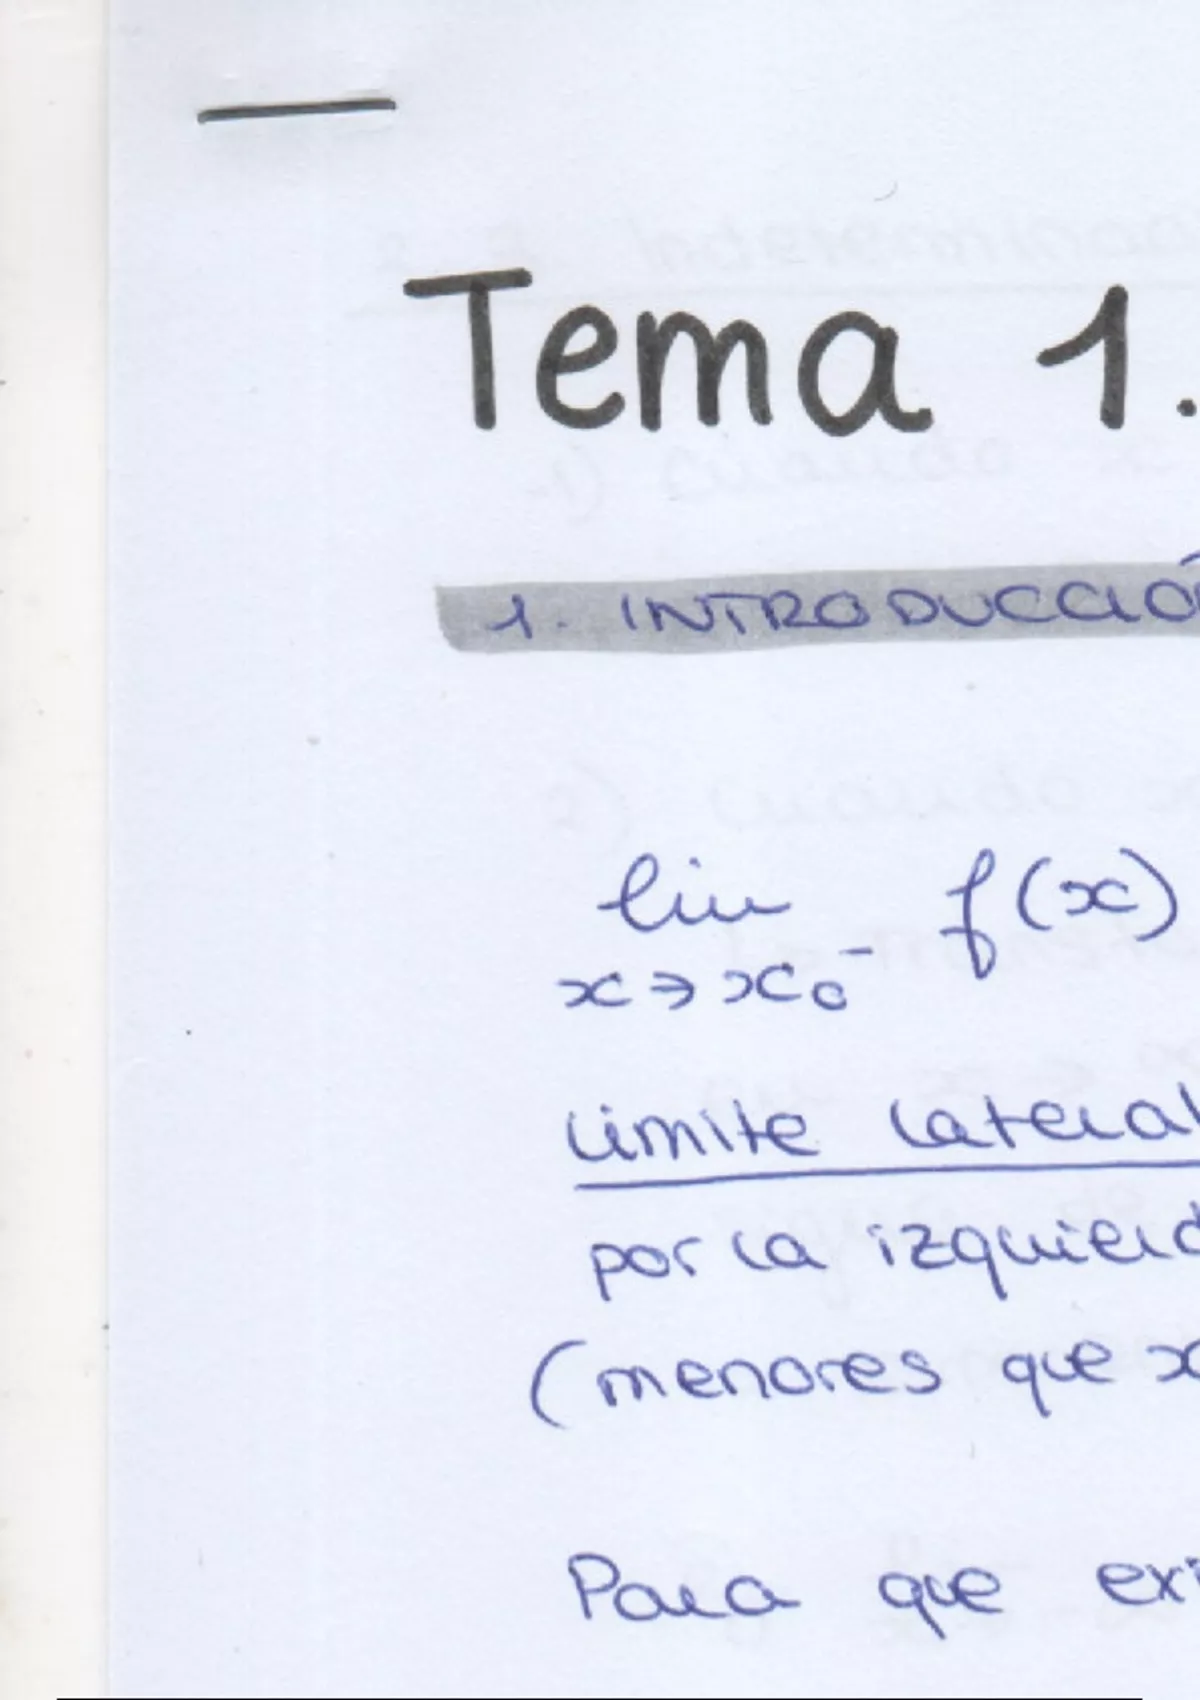 Tema 1.
1. INTRODUCCIÓ
lim f(x)
x→x₀⁻
límite lateral
por la izquierd
(menores que x
Para que exi